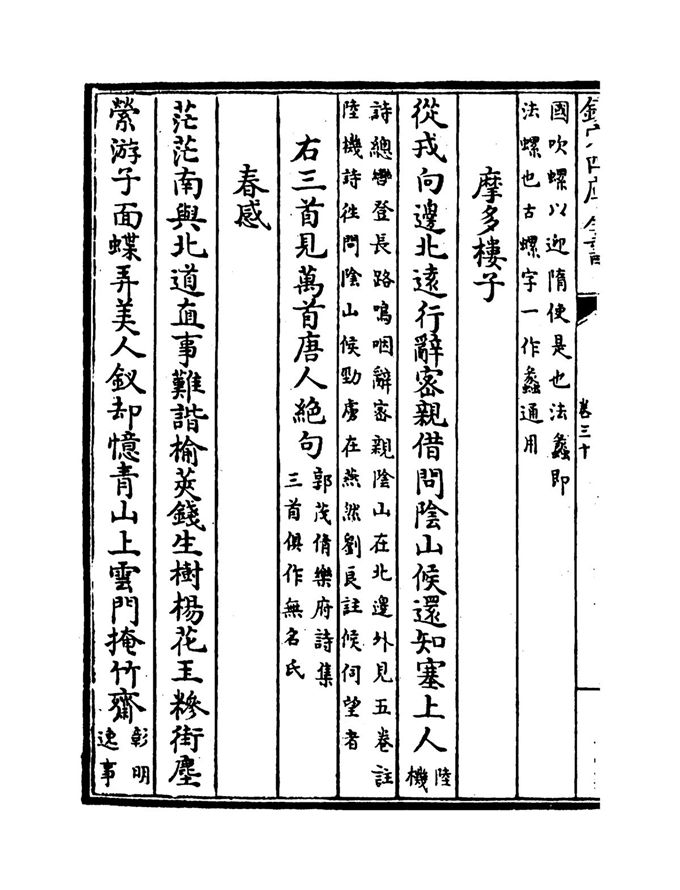 欽定四庫全書
卷三十
國吹螺以迎隋使是也法蠡即
法螺也古螺字一作蠡通用
摩多樓子
從戎向邊北遠行辭密親借問陰山候還知塞上人陸
機
詩總轡登長路嗚咽辭密親陰山在北邊外見五卷註
陸機詩往問陰山候勁虜在燕然劉良註候伺望者
右三首見萬首唐人絶句郭茂倩樂府詩集
三首俱作無名氏
春感
茫茫南與北道直事難諧榆莢錢生樹楊花玉糝街塵
縈游子面蝶弄美人釵却憶青山上雲門掩竹齋彰明
逸事